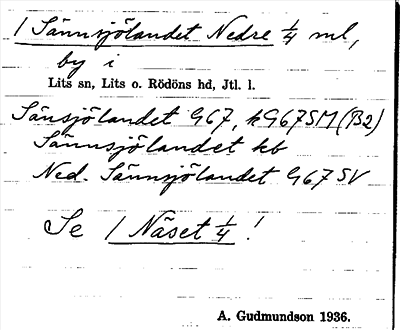 1 Sännsjölandet Nedre 1/4 ml,
by i
Lits sn, Lits o. Rödöns hd, Jtl. l.
Sänsjölandet G67, kG67SM (B2)
Sännsjölandet kb
Ned. Sännsjölandet G67 SV
Se 1 Näset 1/4 !
A. Gudmundson 1936.